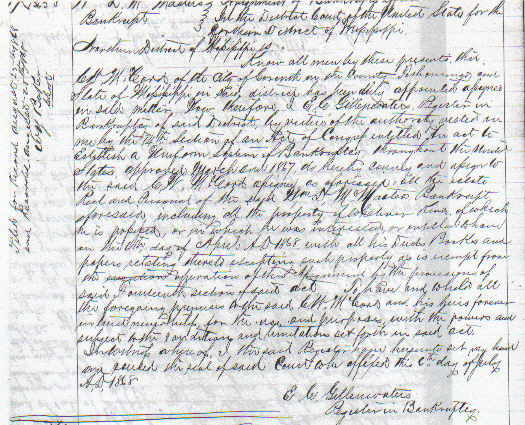 Bankrupt In the District Court of the United States for the
Northern District of Mississippi
Northern District of Mississippi
Know all men by these presents, that
C W McCord of the City of Corinth in the County Tishomingo and
State of Mississippi in said district has been duly appointed assignee
in said matter Now therefore, I E C Gillenwaters, Register in
Bankruptcy of said District, by virtue of the authority vested in
me by the 14th Section of an Act of Congress entitled An act to
Establish a Uniform System of Bankruptcy throughout the United
States approved March 2nd 1867, do hereby convey and assign to
the said C W McCord assignee as aforesaid, all the estate
Real and Personal of the said Bankrupt
aforesaid, including all the property of whatever kind, of which
he is possessed, or in which he was interested or entitled to have
on the day of April AD 1868 with all his Deeds Books and
papers relating thereto excepting such property as is exempt from
the operation of this Assignment by the provisions of
said Fourteenth section of said act To have and to hold all
the foregoing premises to the said C W McCord and his heirs forever
in trust nevertheless for the use and purposes, with the powers and
subject to the Conditions and limitation set forth in said act.
In witness whereof, I the said Register have hereunto set my hand
and caused the seal of said Court to be affixed this 6th day of July
A.D. 1868
E. C. Gillenwaters
Register in Bankruptcy
Filed for Record August
and Recorded